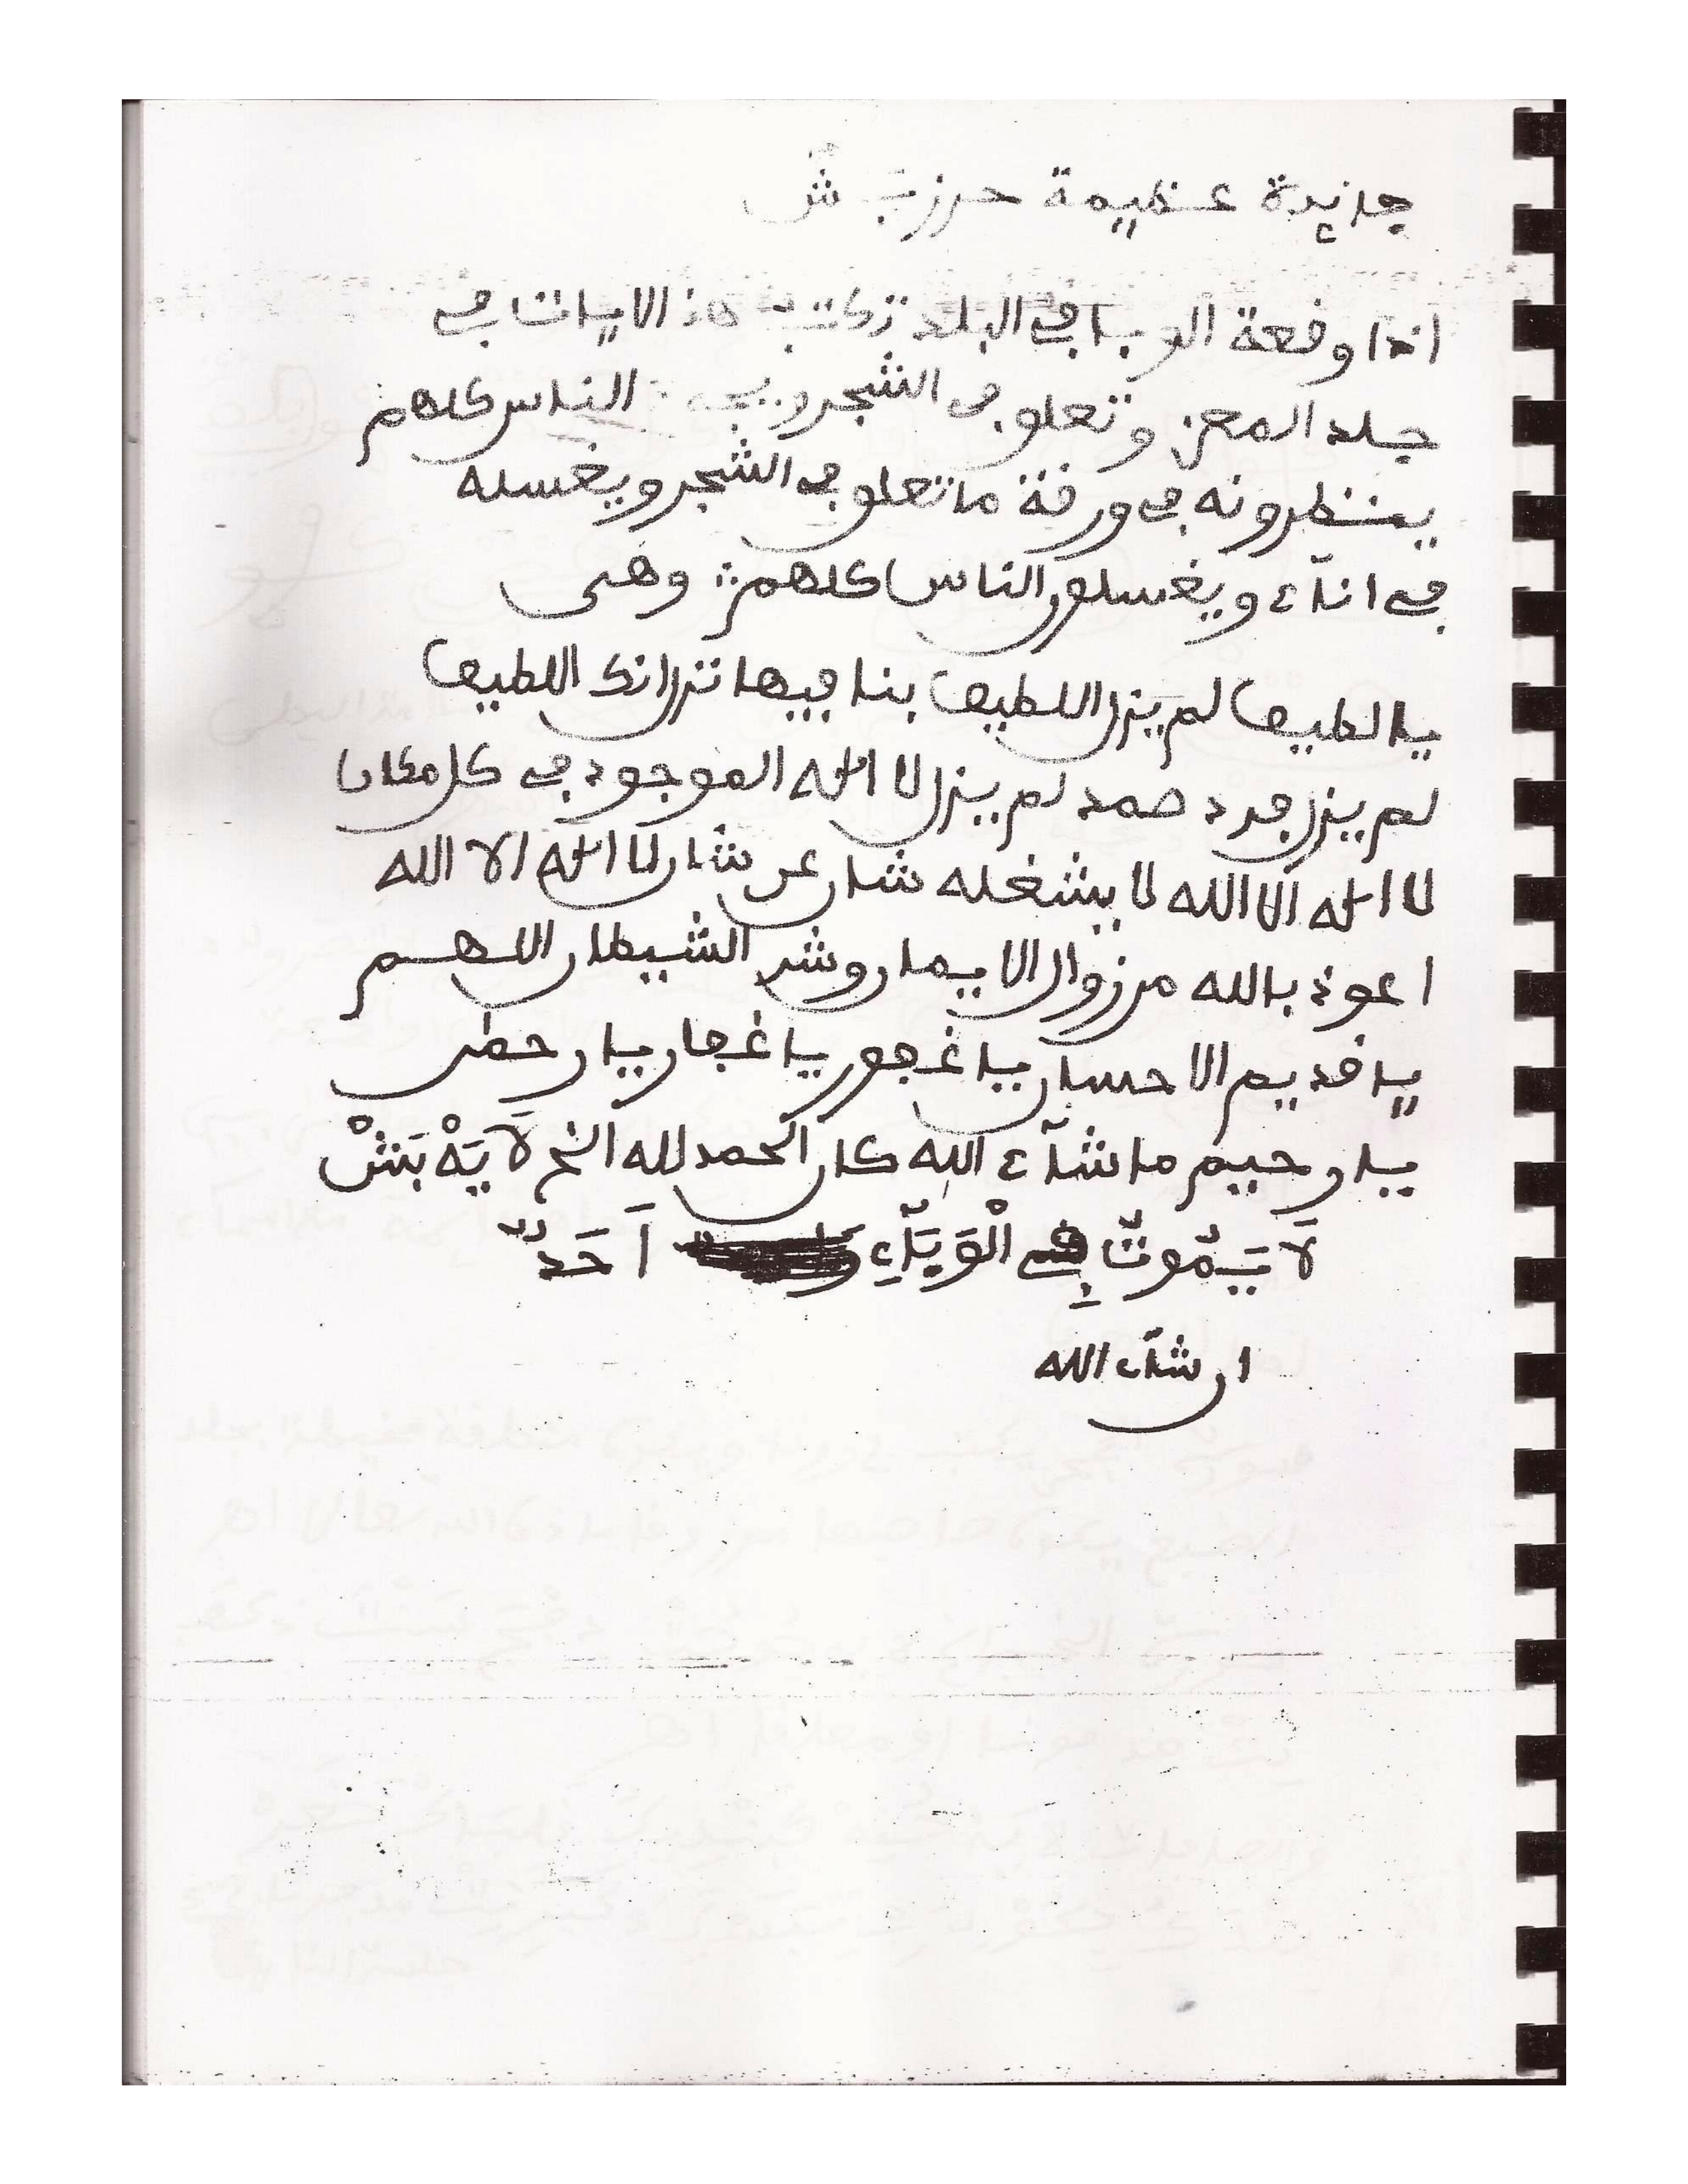 جائدة عظيمة حرزت ش
اذا وفعة الوبا في البلد تكتب هذ الايات في
جلد المعز وتعلو في الشجر ويجـ الناس كلهم
ينظرونه في ورفة ما تعلو في الشجر ويغسله
في اناء ويغسلون الناس كلهم وهي
يا لطيف لم يزل اللطيف بنا فيها نزل انك اللطيف
لم يزل فرد صمد لم يزل لا اله الموجود في كل مكان
لا اله الا الله لا يشغله شان عن شان لا اله الا الله
اعوذ بالله من زوال الايمان وشر الشيطان اللهم
يا فديم الاحسان يا غفور يا غفار يا رحمن
يا رحيم ما شاء الله كان الحمد لله الخ لَا يَهْ بَنشْ
لَا يَمُوتُ فِي الْوَبَاءِ اَحَدٌ
ان شاء الله